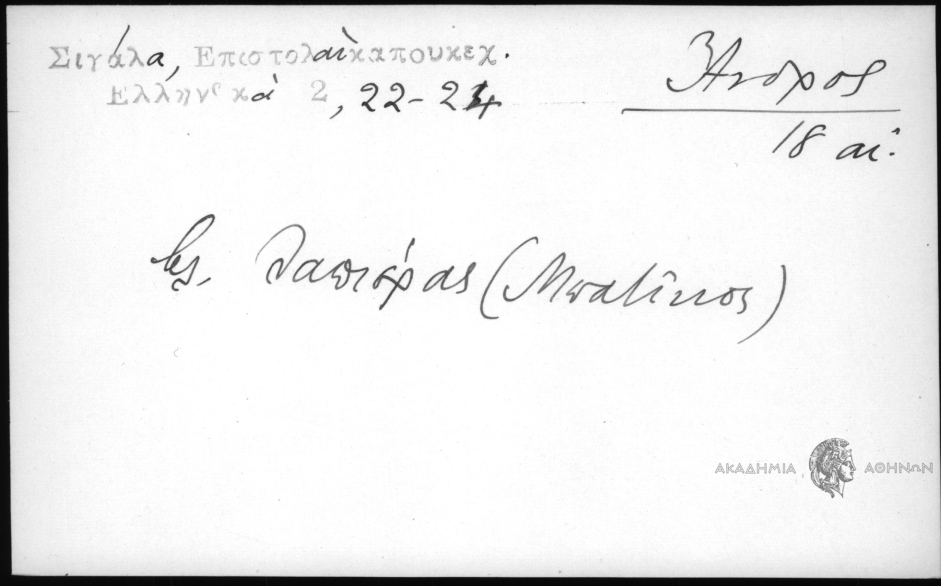 Σιγάλα, Επιστολαὶ καπουκεχ.
Ελληνικά 2, 22-24
Ἄνδρος
18 αἰ.
βλ. (Μπατίκιος)
ΑΚΑΔΗΜΙΑ ΑΘΗΝΩΝ